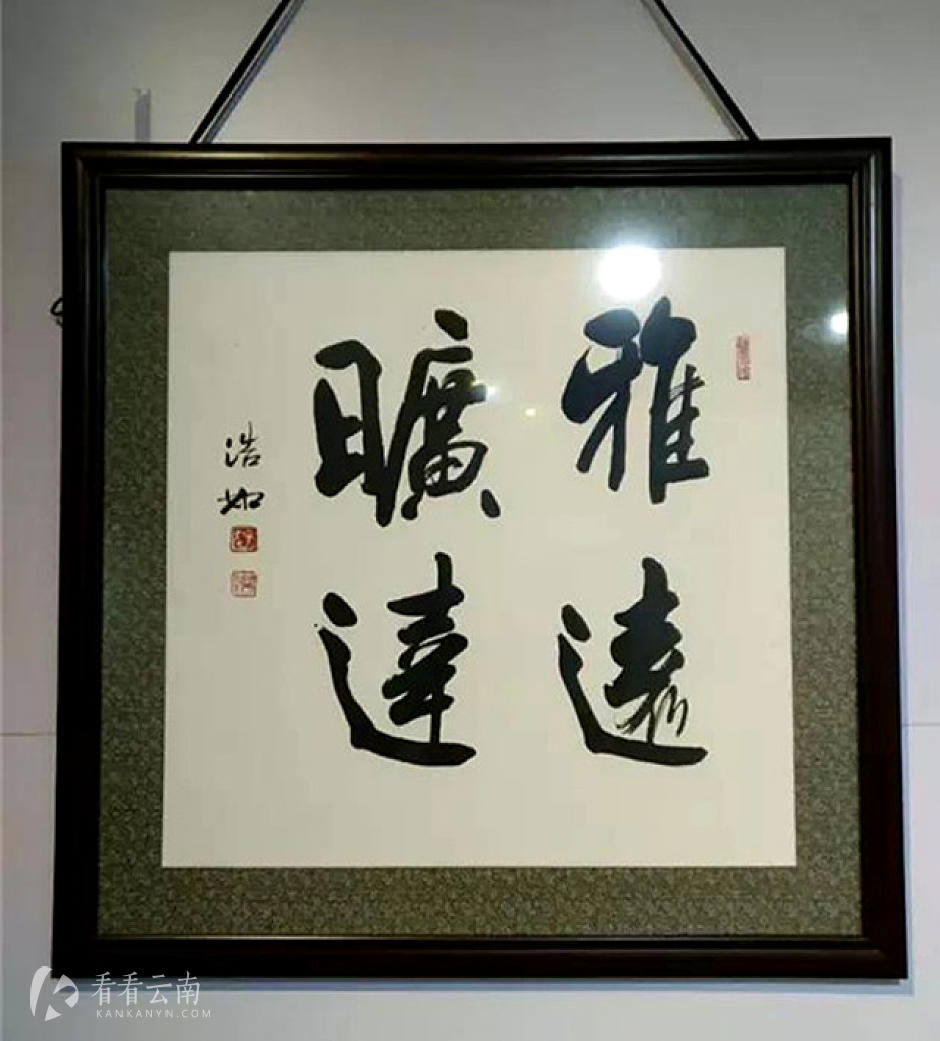 雅遠
曠達
浩如
看看云南
KANKANYN.COM